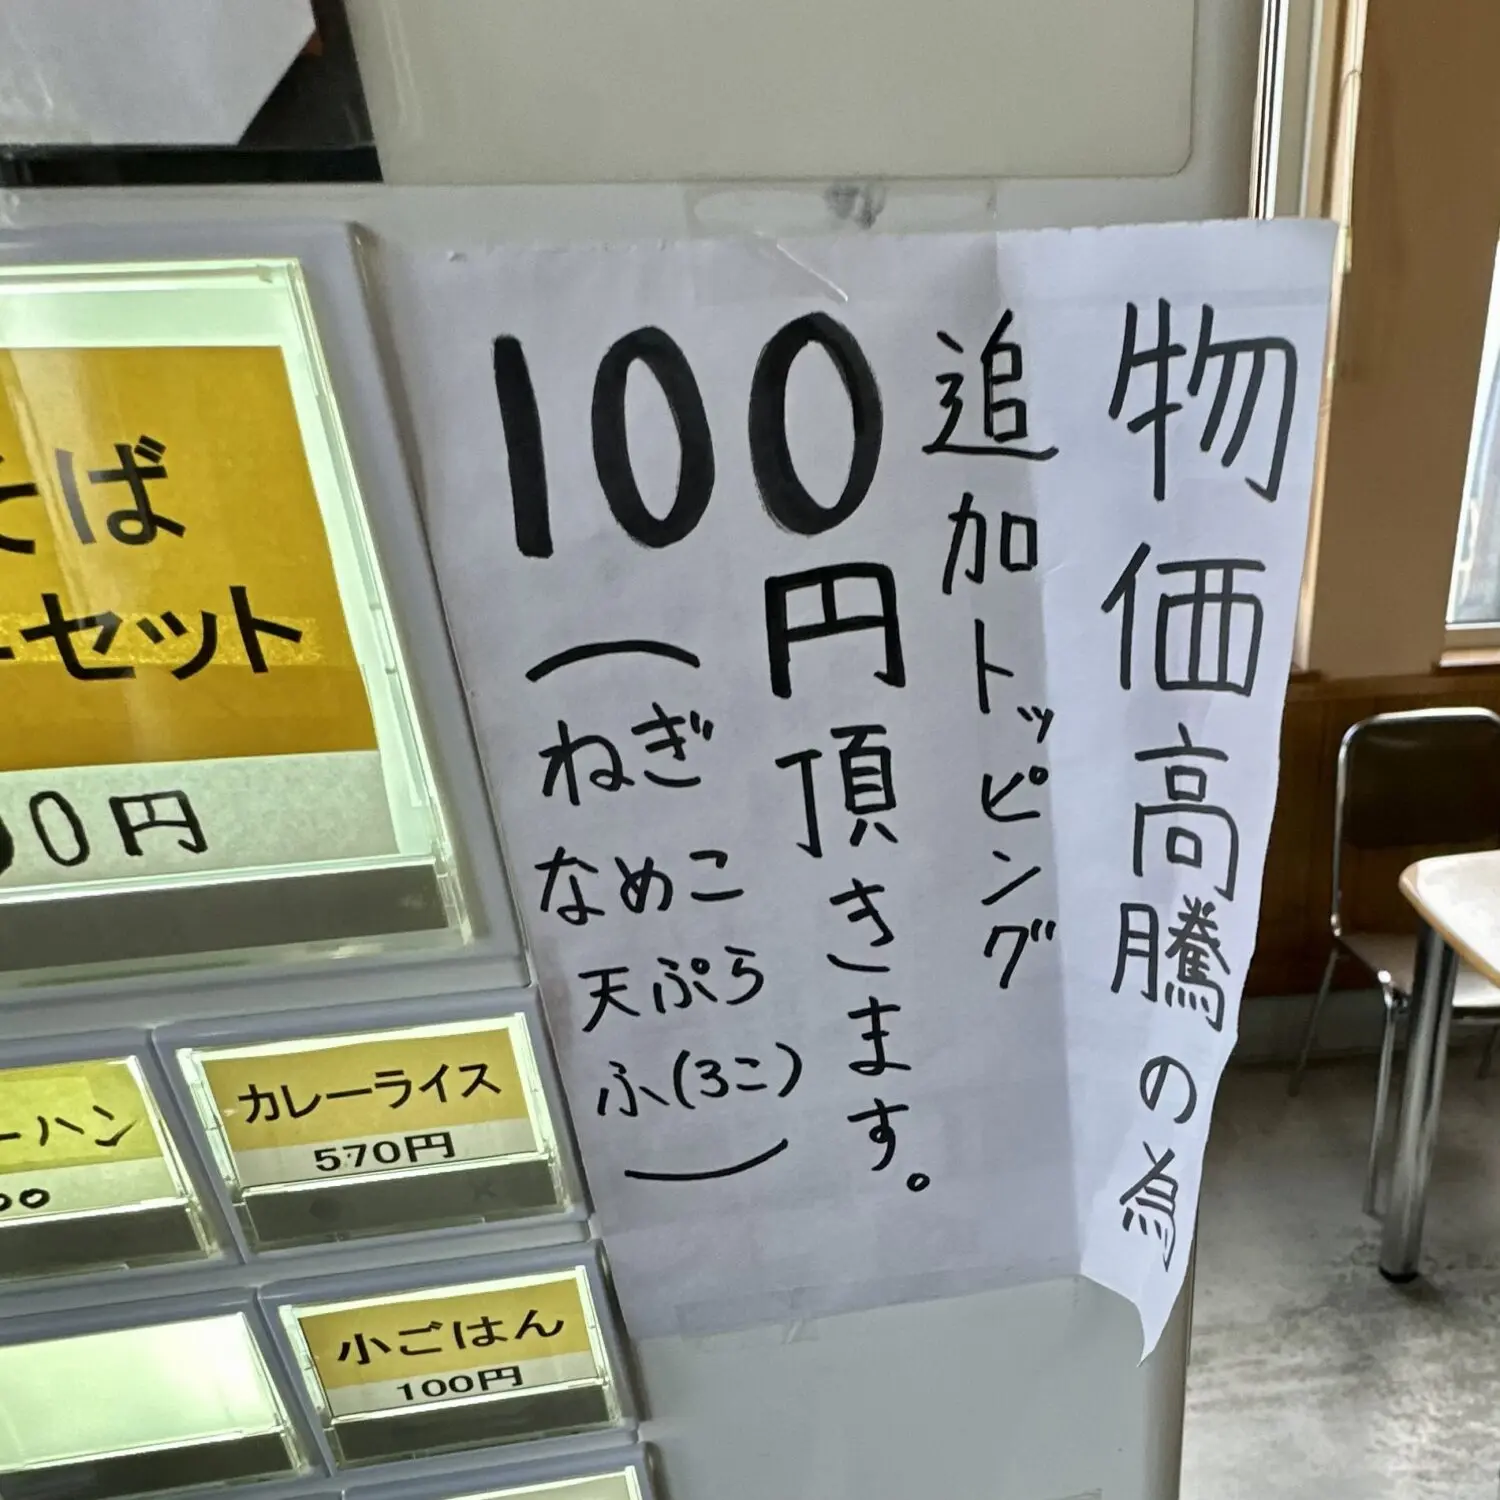 物価高騰の為
追加トッピング
100円頂きます。
(ねぎ
なめこ
天ぷら
ふ(3こ)
)
そば
セット
00円
ーハン
00
カレーライス
570円
小ごはん
100円